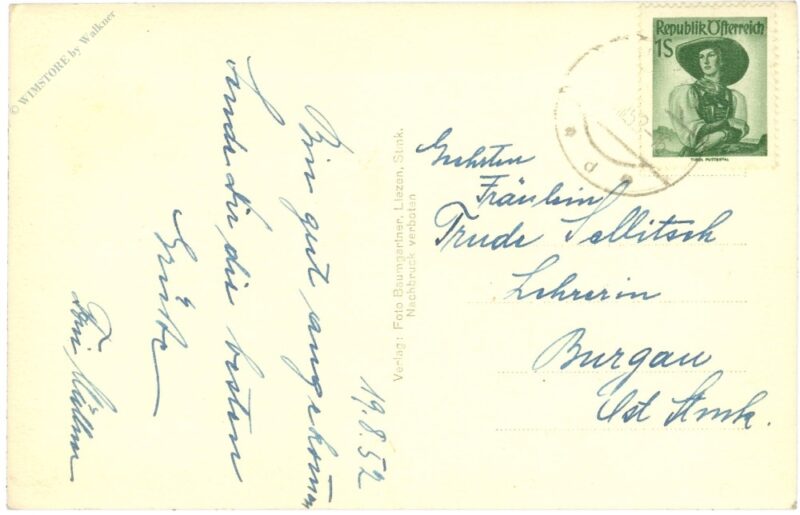 © WIMSTORE by Walkner
19.8.52
Bin gut angekommen
sende dir die besten
Grüße
Verlag: Foto Baumgartner, Liezen, Stmk.
Nachdruck verboten
Republik Österreich
1S
TIROL PUSTERTAL
Geehrten
Fräulein
Trude Sellitsch
Lehrerin
Burgau
Ost Stmk.